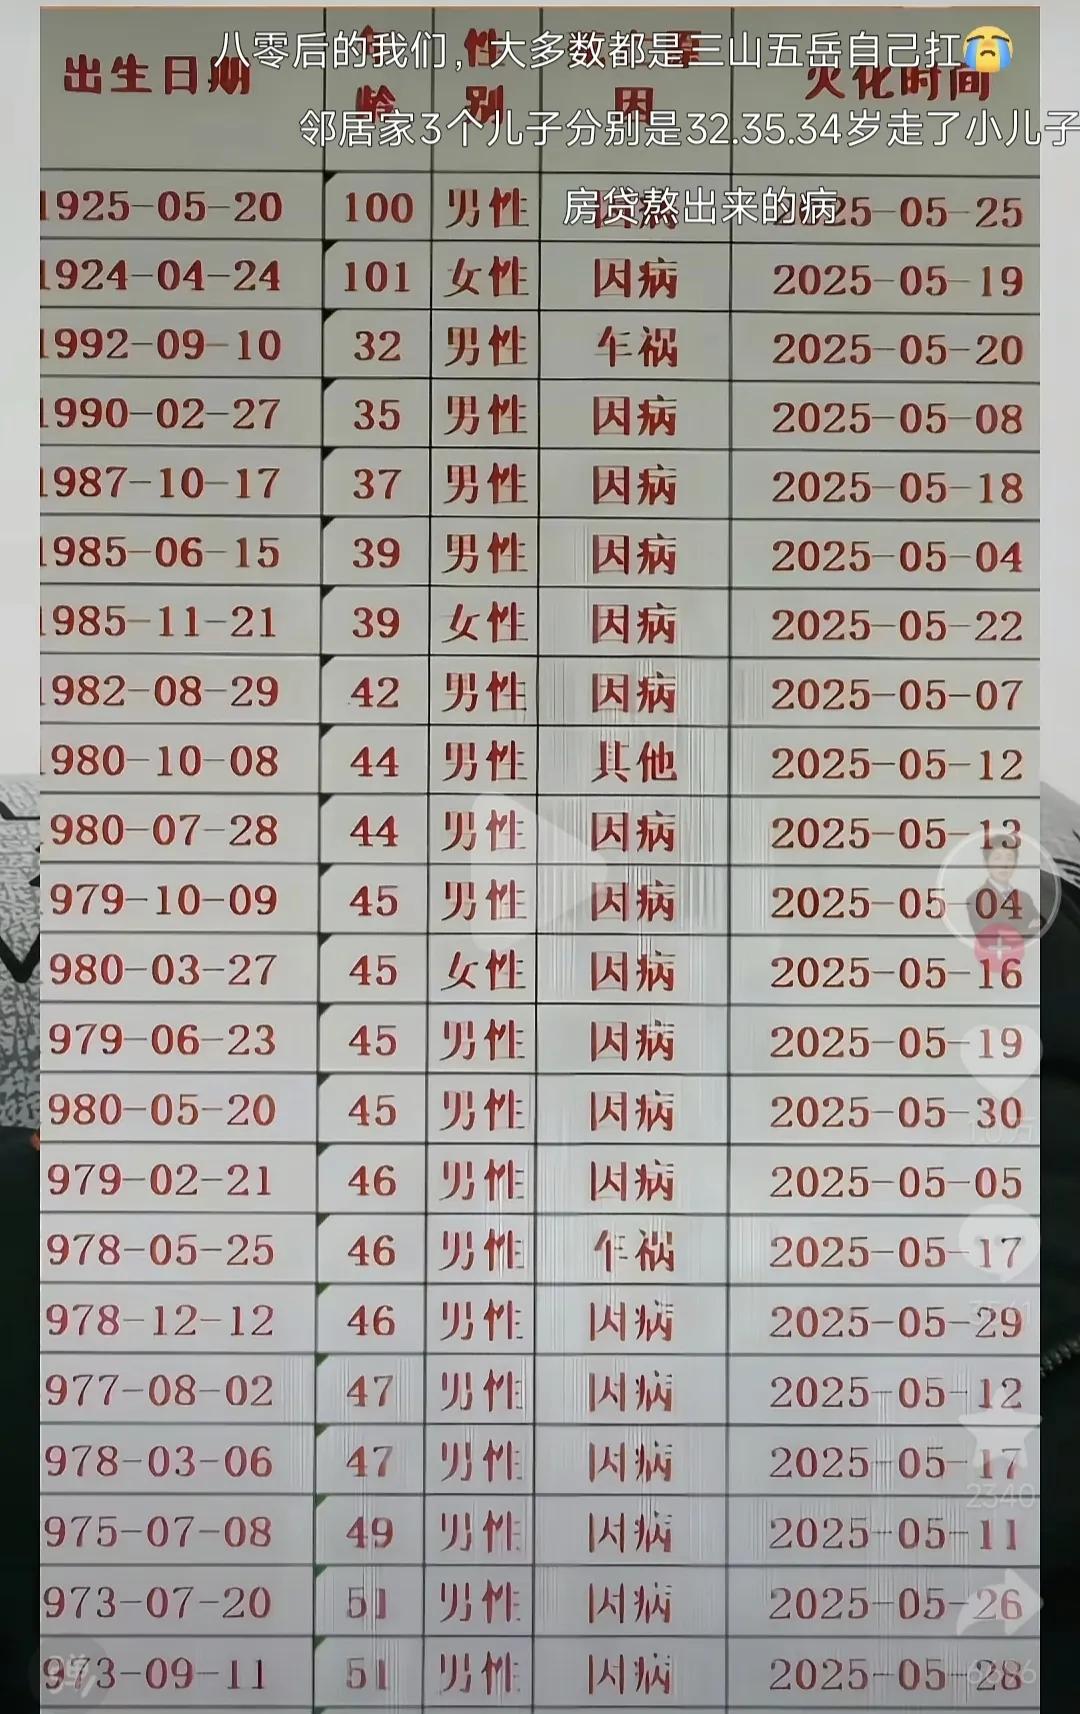 八零后的我们，大多数都是三山五岳自己扛😭
出生日期 龄 性别 因 火化时间
邻居家3个儿子分别是32.35.34岁走了小儿子
房贷熬出来的病
1925-05-20 100 男性 2025-05-25
1924-04-24 101 女性 因病 2025-05-19
1992-09-10 32 男性 车祸 2025-05-20
1990-02-27 35 男性 因病 2025-05-08
1987-10-17 37 男性 因病 2025-05-18
1985-06-15 39 男性 因病 2025-05-04
1985-11-21 39 女性 因病 2025-05-22
1982-08-29 42 男性 因病 2025-05-07
1980-10-08 44 男性 其他 2025-05-12
980-07-28 44 男性 因病 2025-05-13
979-10-09 45 男性 因病 2025-05-04
980-03-27 45 女性 因病 2025-05-16
979-06-23 45 男性 因病 2025-05-19
980-05-20 45 男性 因病 2025-05-30
979-02-21 46 男性 因病 2025-05-05
978-05-25 46 男性 车祸 2025-05-17
978-12-12 46 男性 因病 2025-05-29
977-08-02 47 男性 因病 2025-05-12
978-03-06 47 男性 因病 2025-05-17
2340
975-07-08 49 男性 因病 2025-05-11
973-07-20 51 男性 因病 2025-05-26
973-09-11 51 男性 因病 2025-05-28
弹